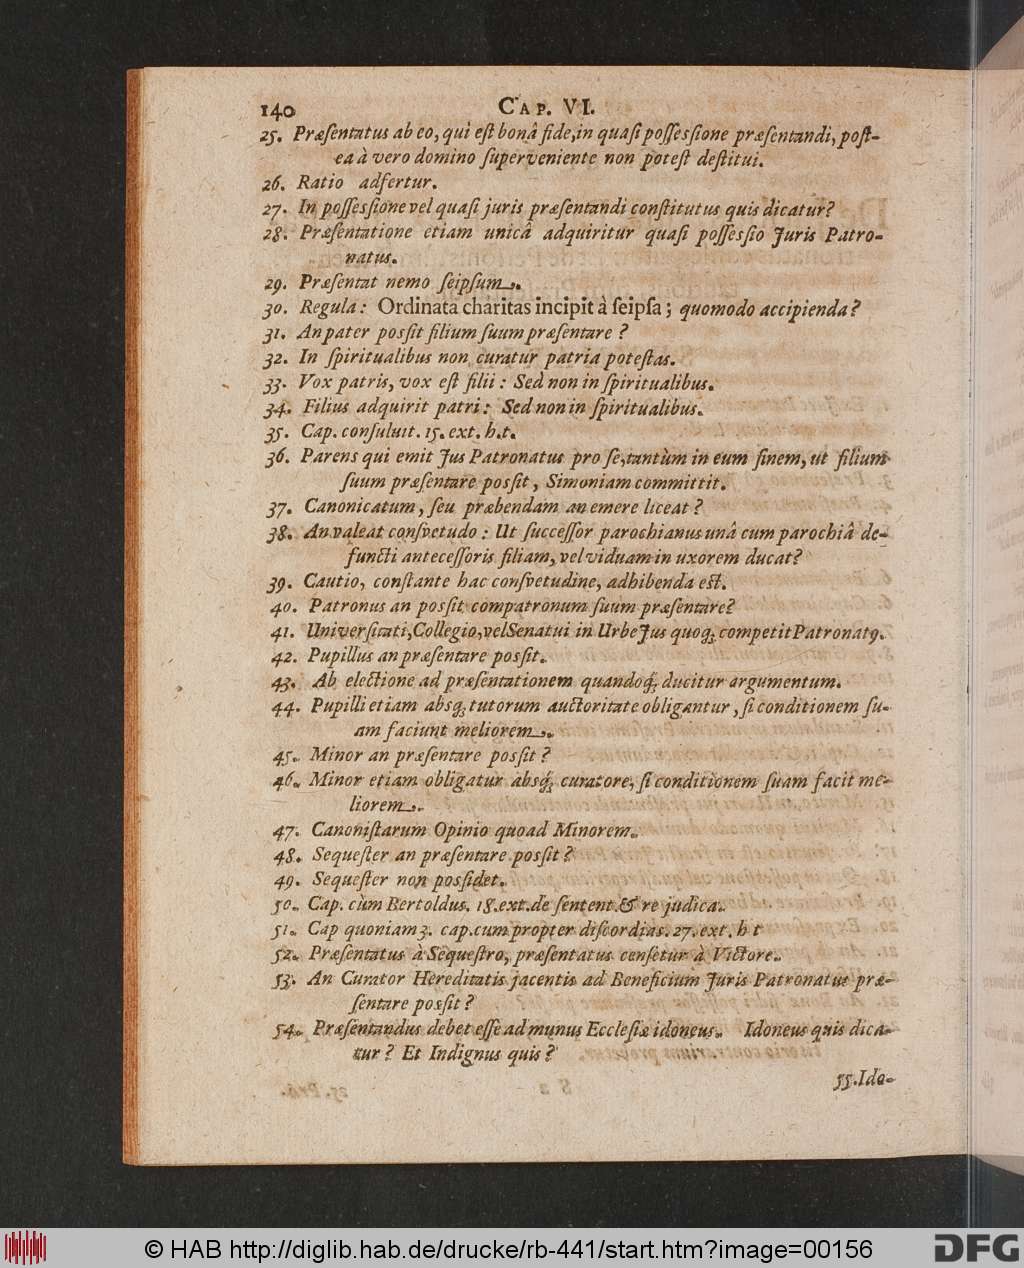 140 CAP. VI.
25. Præſentatus ab eo, qui eſt bonâ fide, in quaſi poſſeſſione præſentandi, poſt-
ea à vero domino ſuperveniente non poteſt deſtitui.
26. Ratio adfertur.
27. In poſſeſſione vel quaſi juris præſentandi conſtitutus quis dicatur?
28. Præſentatione etiam unicâ adquiritur quaſi poſſeſſio Juris Patro-
natus.
29. Præſentat nemo ſeipſum.
30. Regula: Ordinata charitas incipit à ſeipſa; quomodo accipienda?
31. An pater poſſit filium ſuum præſentare?
32. In ſpiritualibus non curatur patria poteſtas.
33. Vox patris, vox eſt filii: Sed non in ſpiritualibus.
34. Filius adquirit patri: Sed non in ſpiritualibus.
35. Cap. conſuluit. 15. ext. h.t.
36. Parens qui emit Jus Patronatus pro ſe, tantùm in eum finem, ut filium
ſuum præſentare poſſit, Simoniam committit.
37. Canonicatum, ſeu præbendam an emere liceat?
38. An valeat conſvetudo: Ut ſucceſſor parochianus unâ cum parochiâ de-
functi anteceſſoris filiam, vel viduam in uxorem ducat?
39. Cautio, conſtante hac conſvetudine, adhibenda eſt.
40. Patronus an poſſit compatronum ſuum præſentare?
41. Univerſitati, Collegio, vel Senatui in Urbe Jus quoq; competit Patronatꝰ.
42. Pupillus an præſentare poſſit.
43. Ab electione ad præſentationem quandoq; ducitur argumentum.
44. Pupilli etiam absq; tutorum auctoritate obligantur, ſi conditionem ſu-
am faciunt meliorem.
45. Minor an præſentare poſſit?
46. Minor etiam obligatur absq; curatore, ſi conditionem ſuam facit me-
liorem.
47. Canoniſtarum Opinio quoad Minorem.
48. Sequeſter an præſentare poſſit?
49. Sequeſter non poſſidet.
50. Cap. cùm Bertoldus. 18. ext. de ſentent. & re judica.
51. Cap quoniam 3. cap. cum propter diſcordias. 27. ext. h t
52. Præſentatus à Sequeſtro, præſentatus cenſetur à Victore.
53. An Curator Hereditatis jacentis ad Beneficium Juris Patronatus præ-
ſentare poſſit?
54. Præſentandus debet eſſe ad munus Eccleſiæ idoneus. Idoneus quis dica-
tur? Et Indignus quis?
55. Ido-
© HAB http://diglib.hab.de/drucke/rb-441/start.htm?image=00156
DFG